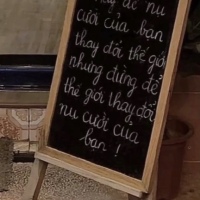 Hãy để nụ
cười của bạn
thay đổi thế giới
nhưng đừng để
thế giới thay đổi
nụ cười của
bạn !